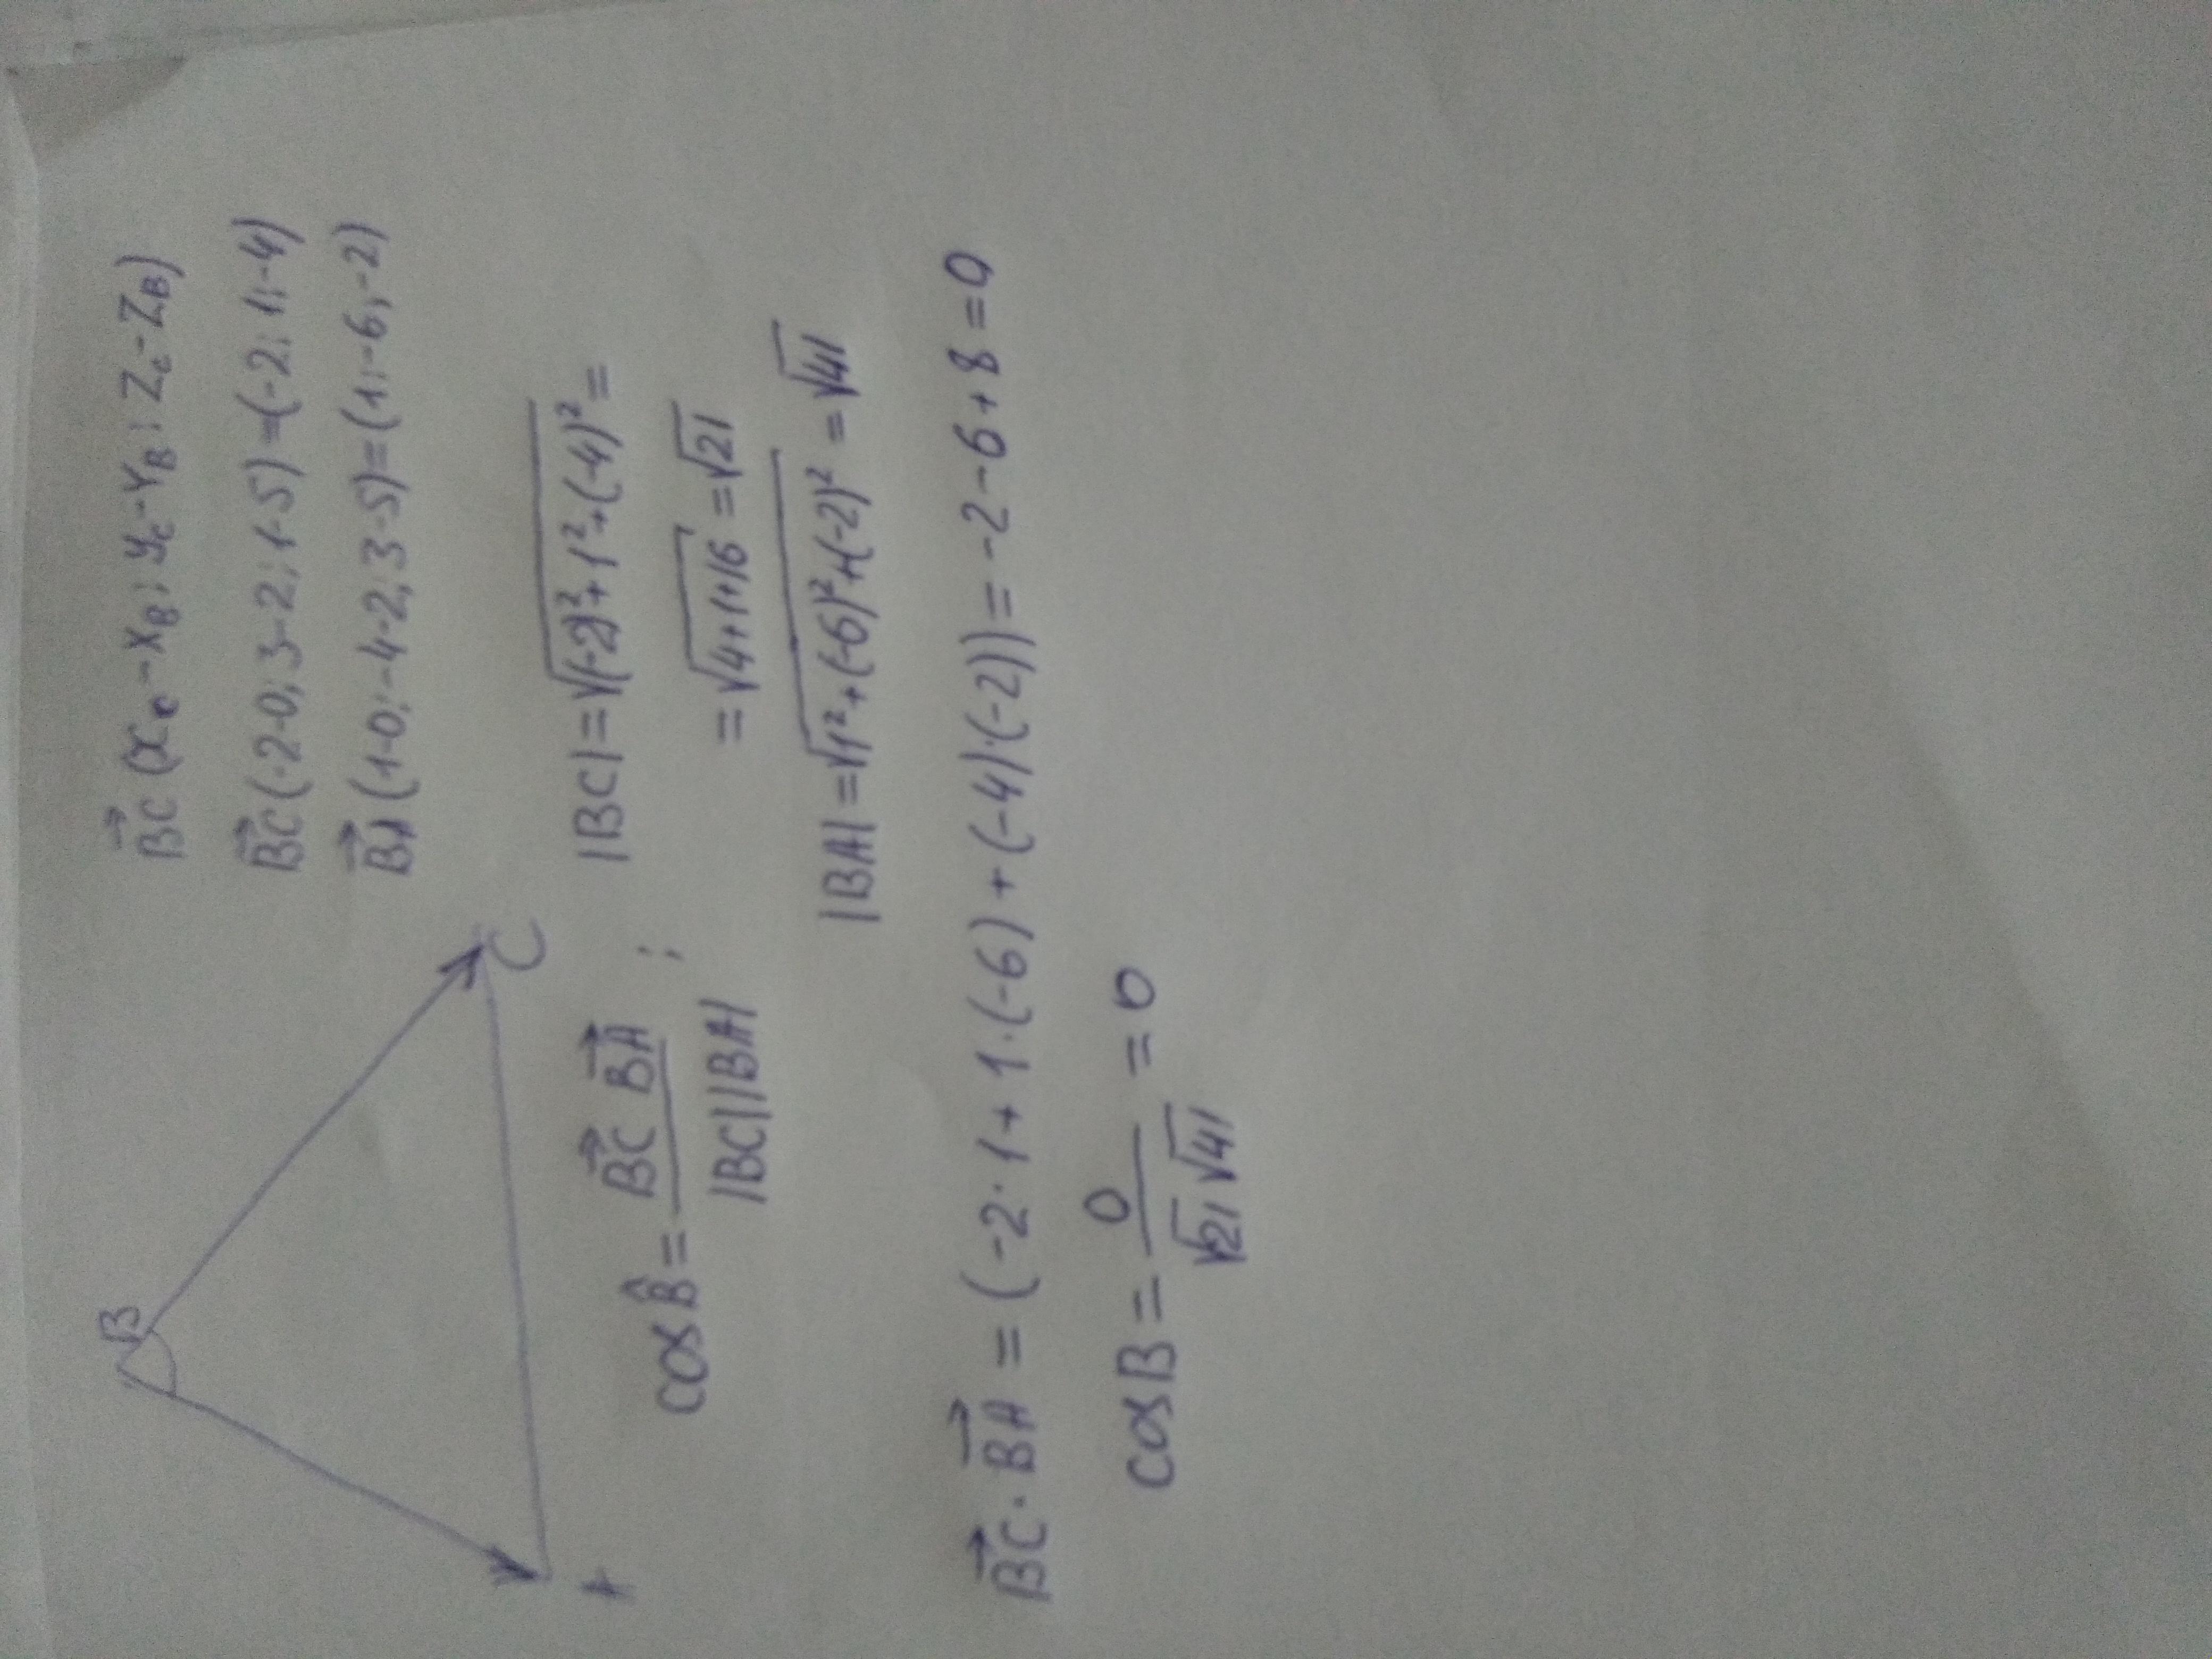 B
A
C
B⃗C (x_c - x_B; y_c - y_B; z_c - z_B)
B⃗C (-2-0; 3-2; 1-5) = (-2; 1; -4)
B⃗A (1-0; -4-2; 3-5) = (1; -6; -2)
cos B̂ = B⃗C B⃗A / |BC||BA| ;
|BC| = √((-2)² + 1² + (-4)²) =
= √(4+1+16) = √21
|BA| = √(1² + (-6)² + (-2)²) = √41
B⃗C · B⃗A = (-2 · 1 + 1 · (-6) + (-4) · (-2)) = -2 - 6 + 8 = 0
cos B = 0 / √21 √41 = 0